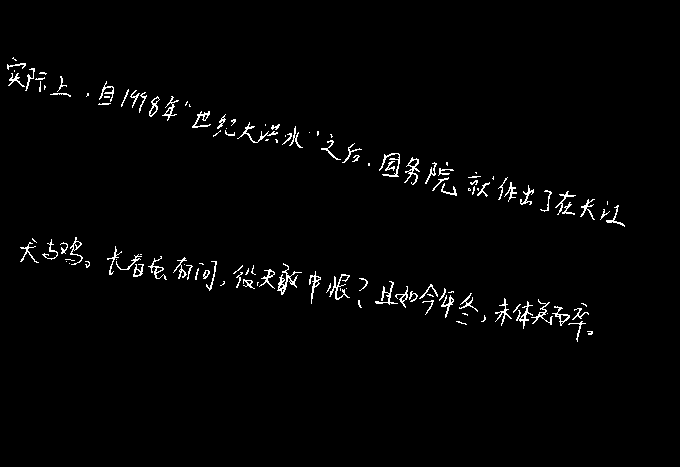 实际上，自1998年“世纪大洪水”之后，国务院就作出了在长江
犬与鸡。长者虽有问，役夫敢申恨？且如今年冬，未休关西卒。